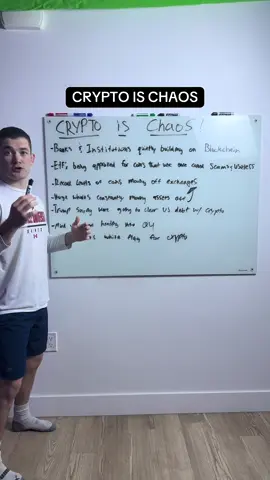 CRYPTO IS CHAOS
CRYPTO IS CHAOS
- Banks & Institutions quietly building on Blockchain
- ETFs being approved for coins that were once called
- Record amounts of coins moving off exchanges
- Huge whales constantly moving assets
- Trump saying were going to clear US debt w/ crypto
- heading into Q4
white play for crypto